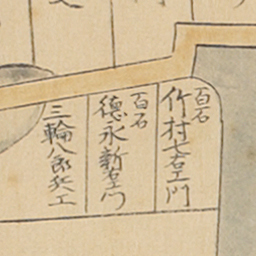 百石
竹村七右エ門
百石
徳永新右エ門
三輪八郎兵エ